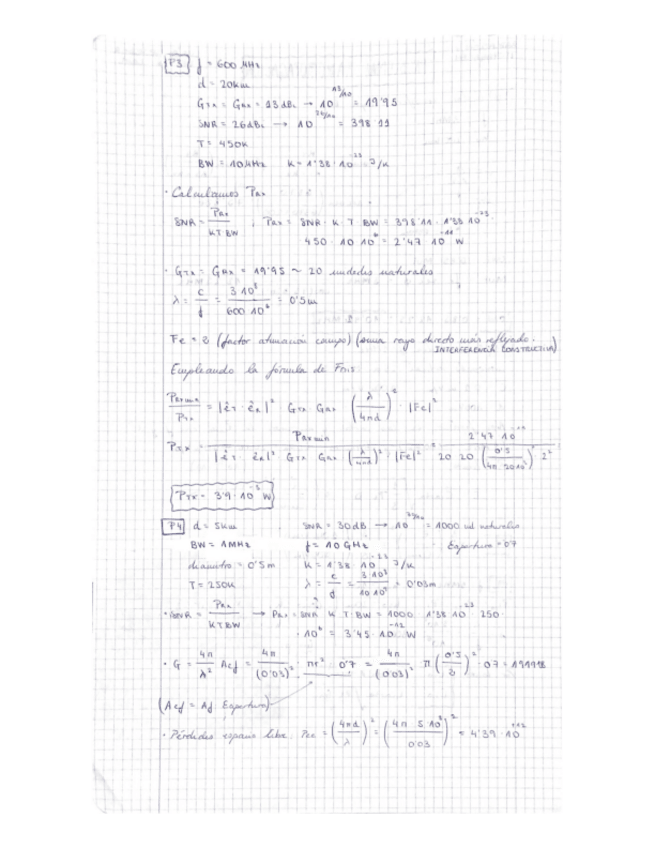 P3 f = 600 MHz
d = 20km
GTx = GRx = 13 dBi → 10^13/10 = 19'95
SNR = 26dBi → 10^26/10 = 398'11
T = 450K
BW = 10MHz K = 1'38·10^-23 J/K
· Calculamos PRx
SNR = PRx / KTBW ; PRx = SNR · K · T · BW = 398'11 · 1'38 10^-23 ·
450 · 10 10^6 = 2'47 10^-11 W
· GTx = GRx = 19'95 ~ 20 unidades naturales
λ = c/f = 3 10^8 / 600 10^6 = 0'5m
Fe = 2 (factor atenuación campo) (suma rayo directo más reflejado.
INTERFERENCIA CONSTRUCTIVA)
Empleando la fórmula de Friis
PRxmin / PTx = |êT · êR|² GTx GRx (λ/4πd)² · |Fe|²
PTx = PRxmin / |êT · êR|² GTx GRx (λ/4πd)² |Fe|² = 2'47 10^-11 / 20 20 (0'5 / 4π 20 10³)² 2²
PTx = 3'9 · 10^-3 W
P4 d = 5km SNR = 30dB → 10^30/10 = 1000 ud naturales
BW = 1MHz f = 10 GHz Eapertura = 0'7
diámetro = 0'5m K = 1'38 10^-23 J/K
T = 250K λ = c/f = 3 10^8 / 10 10^9 = 0'03m
· SNR = PRx / KTBW → PRx = SNR K T BW = 1000 1'38 10^-23 250 ·
· 10^6 = 3'45 10^-12 W
· G = 4π/λ² Aef = 4π/(0'03)² · πr² 0'7 = 4π/(0'03)² π (0'5/2)² · 0'7 = 1919'18
(Aef = Af. Eapertura)
· Pérdidas espacio libre: PEL = (4πd/λ)² = (4π 5 10³ / 0'03)² = 4'39 · 10^12